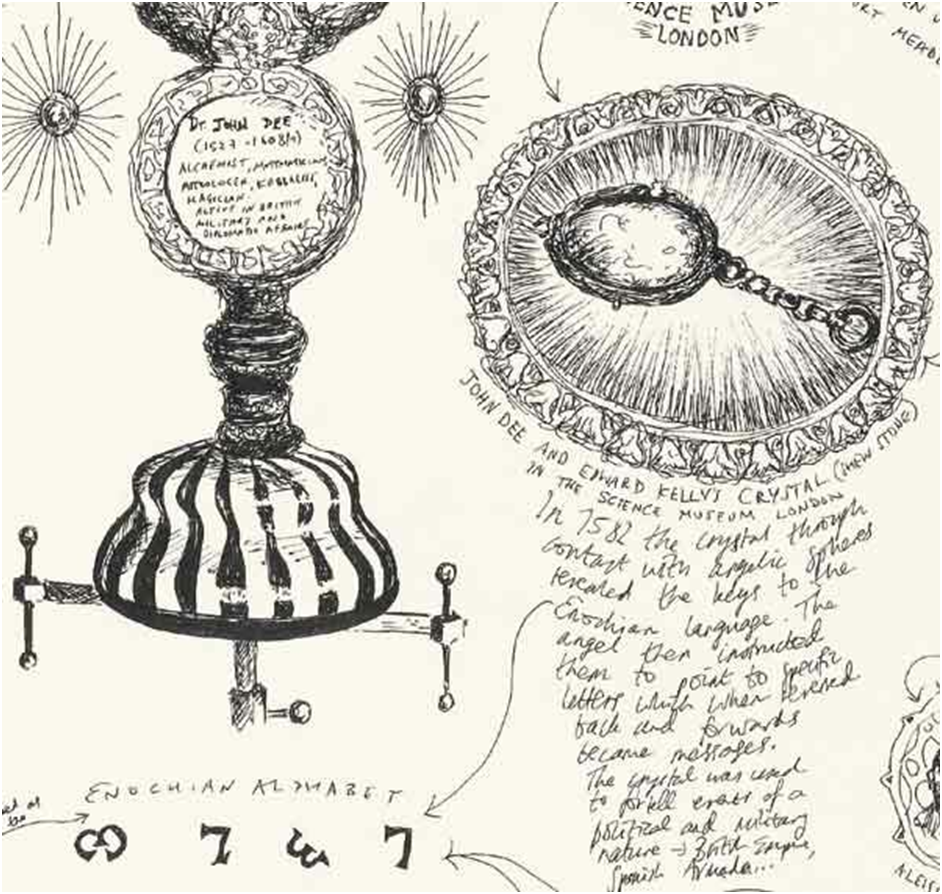 ENCE MUS
LONDON
MEMBE
Dr. JOHN DEE
(1527 - 1608/9)
ALCHEMIST, MATHEMATICIAN,
ASTROLOGER, KABBALIST,
MAGICIAN.
ACTIVE IN BRITISH
MILITARY AND
DIPLOMATIC AFFAIRS
JOHN DEE AND EDWARD KELLY'S CRYSTAL (SHEW STONE)
IN THE SCIENCE MUSEUM LONDON
In 1582 the crystal through
contact with angelic spheres
revealed the keys to the
Enochian language. The
angel then instructed
them to point to specific
letters which when
back and forwards
became messages.
The crystal was used
to events of a
political and military
nature → British Empire,
Spanish Armada...
ENOCHIAN ALPHABET
ALEIS